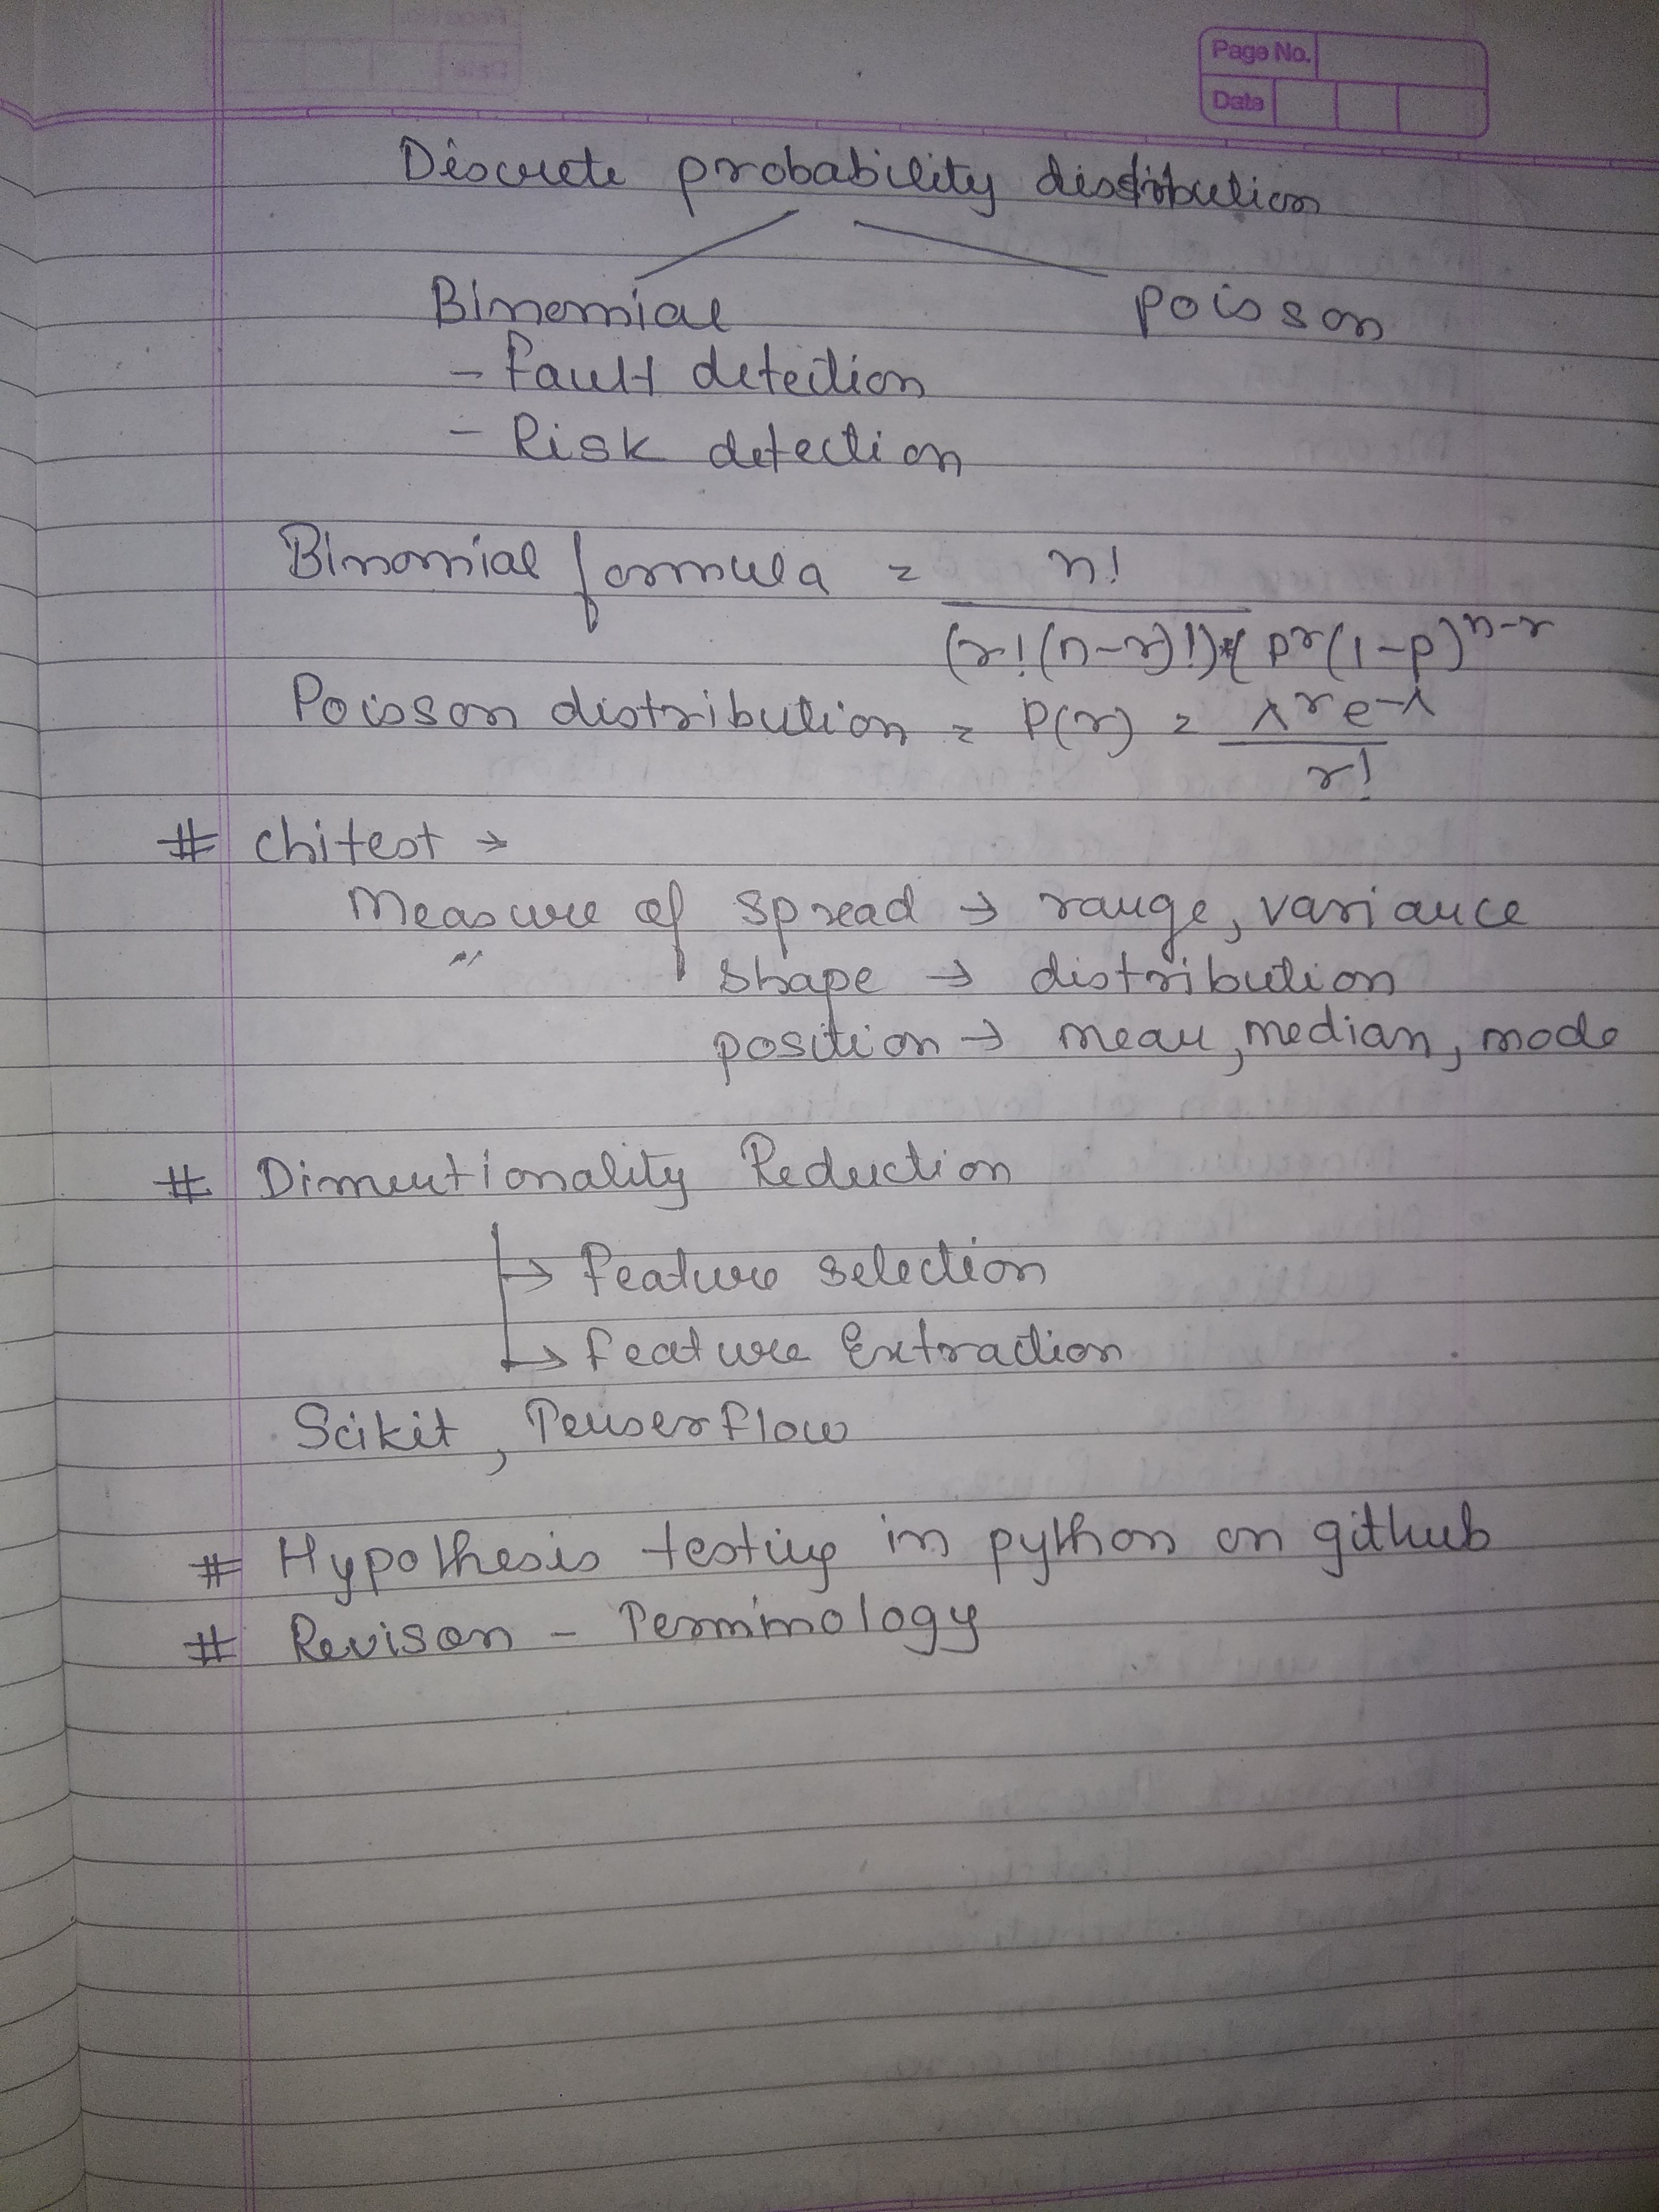 Page No.
Date
Discrete probability distribution
Binomial
poisson
- Fault detection
- Risk detection
Binomial formula = n!
(r!(n-r)!)* p^r(1-p)^n-r
Poisson distribution = P(r) = λ^r e^-λ
r!
# chitest →
Measure of spread → range, variance
〃 shape → distribution
position → mean, median, mode
# Dimentionality Reduction
→ Feature selection
→ Feature Extraction
Scikit, Tenserflow
# Hypothesis testing in python on github
# Revison - Terminology